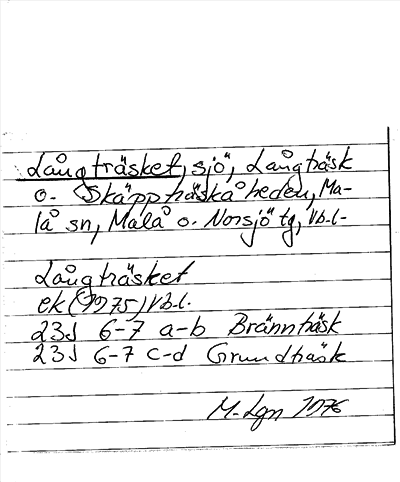 Långträsket, sjö, Långträsk
o. Skäppträskåheden, Ma-
lå sn, Malå o. Norsjö tg, Vb.l.
Långträsket
ek (1975) Vb.l.
23J 6-7 a-b Brännträsk
23J 6-7 c-d Grundträsk
M. Lgn 1976